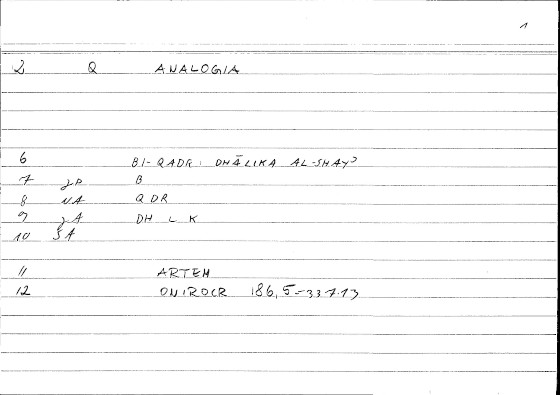 1
2 Q ANALOGIA
6 BI-QADRI DHĀLIKA AL-SHAYʾ
7 B
8 NA QDR
9 DH L K
10
11 ARTEM
12 ONIROCR 186,5-337.13